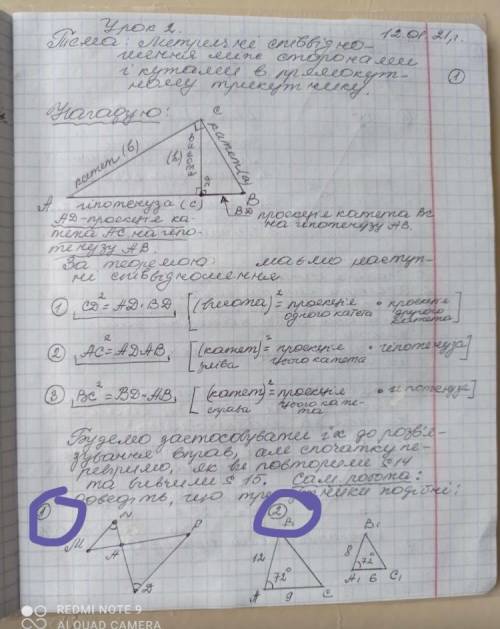 Урок 2. 12.01.21р.
Тема: Метричні співвідно-
шення між сторонами
і кутами в прямокут-
ному трикутнику.
1
Нагадую:
C
катет (b)
(h)
висота
катет (a)
A гіпотенуза (c) D B
AD-проекція ка-
тета AC на гіпо-
тенузу AB.
BD проекція катета BC
на гіпотенузу AB.
За теоремою маємо наступ-
ні співвідношення
1 CD² = AD·BD [(висота)² = проекція одного катета · проекція другого катета]
2 AC² = AD·AB [(катет)² зліва = проекція цього катета · гіпотенуза]
3 BC² = BD·AB [(катет)² справа = проекція цього кате-та · гіпотенуза]
Будемо застосовувати їх до розв'я-
зування вправ, але спочатку пе-
ревіримо, як ви повторили §14
та вивчили § 15. Сам. робота:
доведіть, що трикутники подібні:
1 2
N P B₁ B₁
B
M A 12 8
72° 72°
D A 9 C A₁ 6 C₁
REDMI NOTE 9
AI QUAD CAMERA